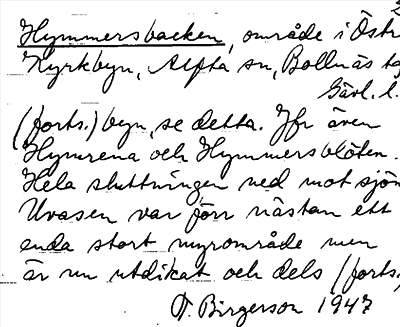 2
Hymmersbacken, område i Östr
Kyrkbyn, Alfta sn, Bollnäs tg
Gävl. l.
(forts.) byn, se detta. Jfr även
Hymrena och Hymmersblöten.
Hela sluttningen ned mot sjön
Uvasen var förr nästan ett
enda stort myrområde men
är nu utdikat och dels (forts.)
T. Birgerson 1947